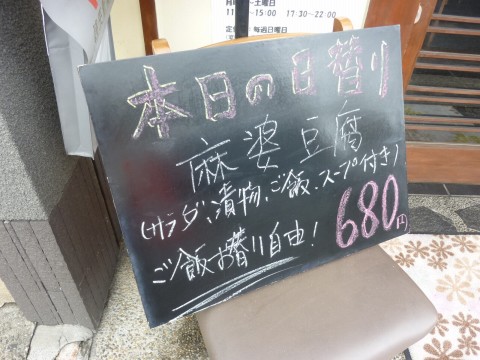 11:   ~15:00 17:30~22:00
毎週日曜日
本日の日替り
麻婆豆腐
(サラダ、漬物、ご飯、スープ付き)
680円
ご飯お替り自由!